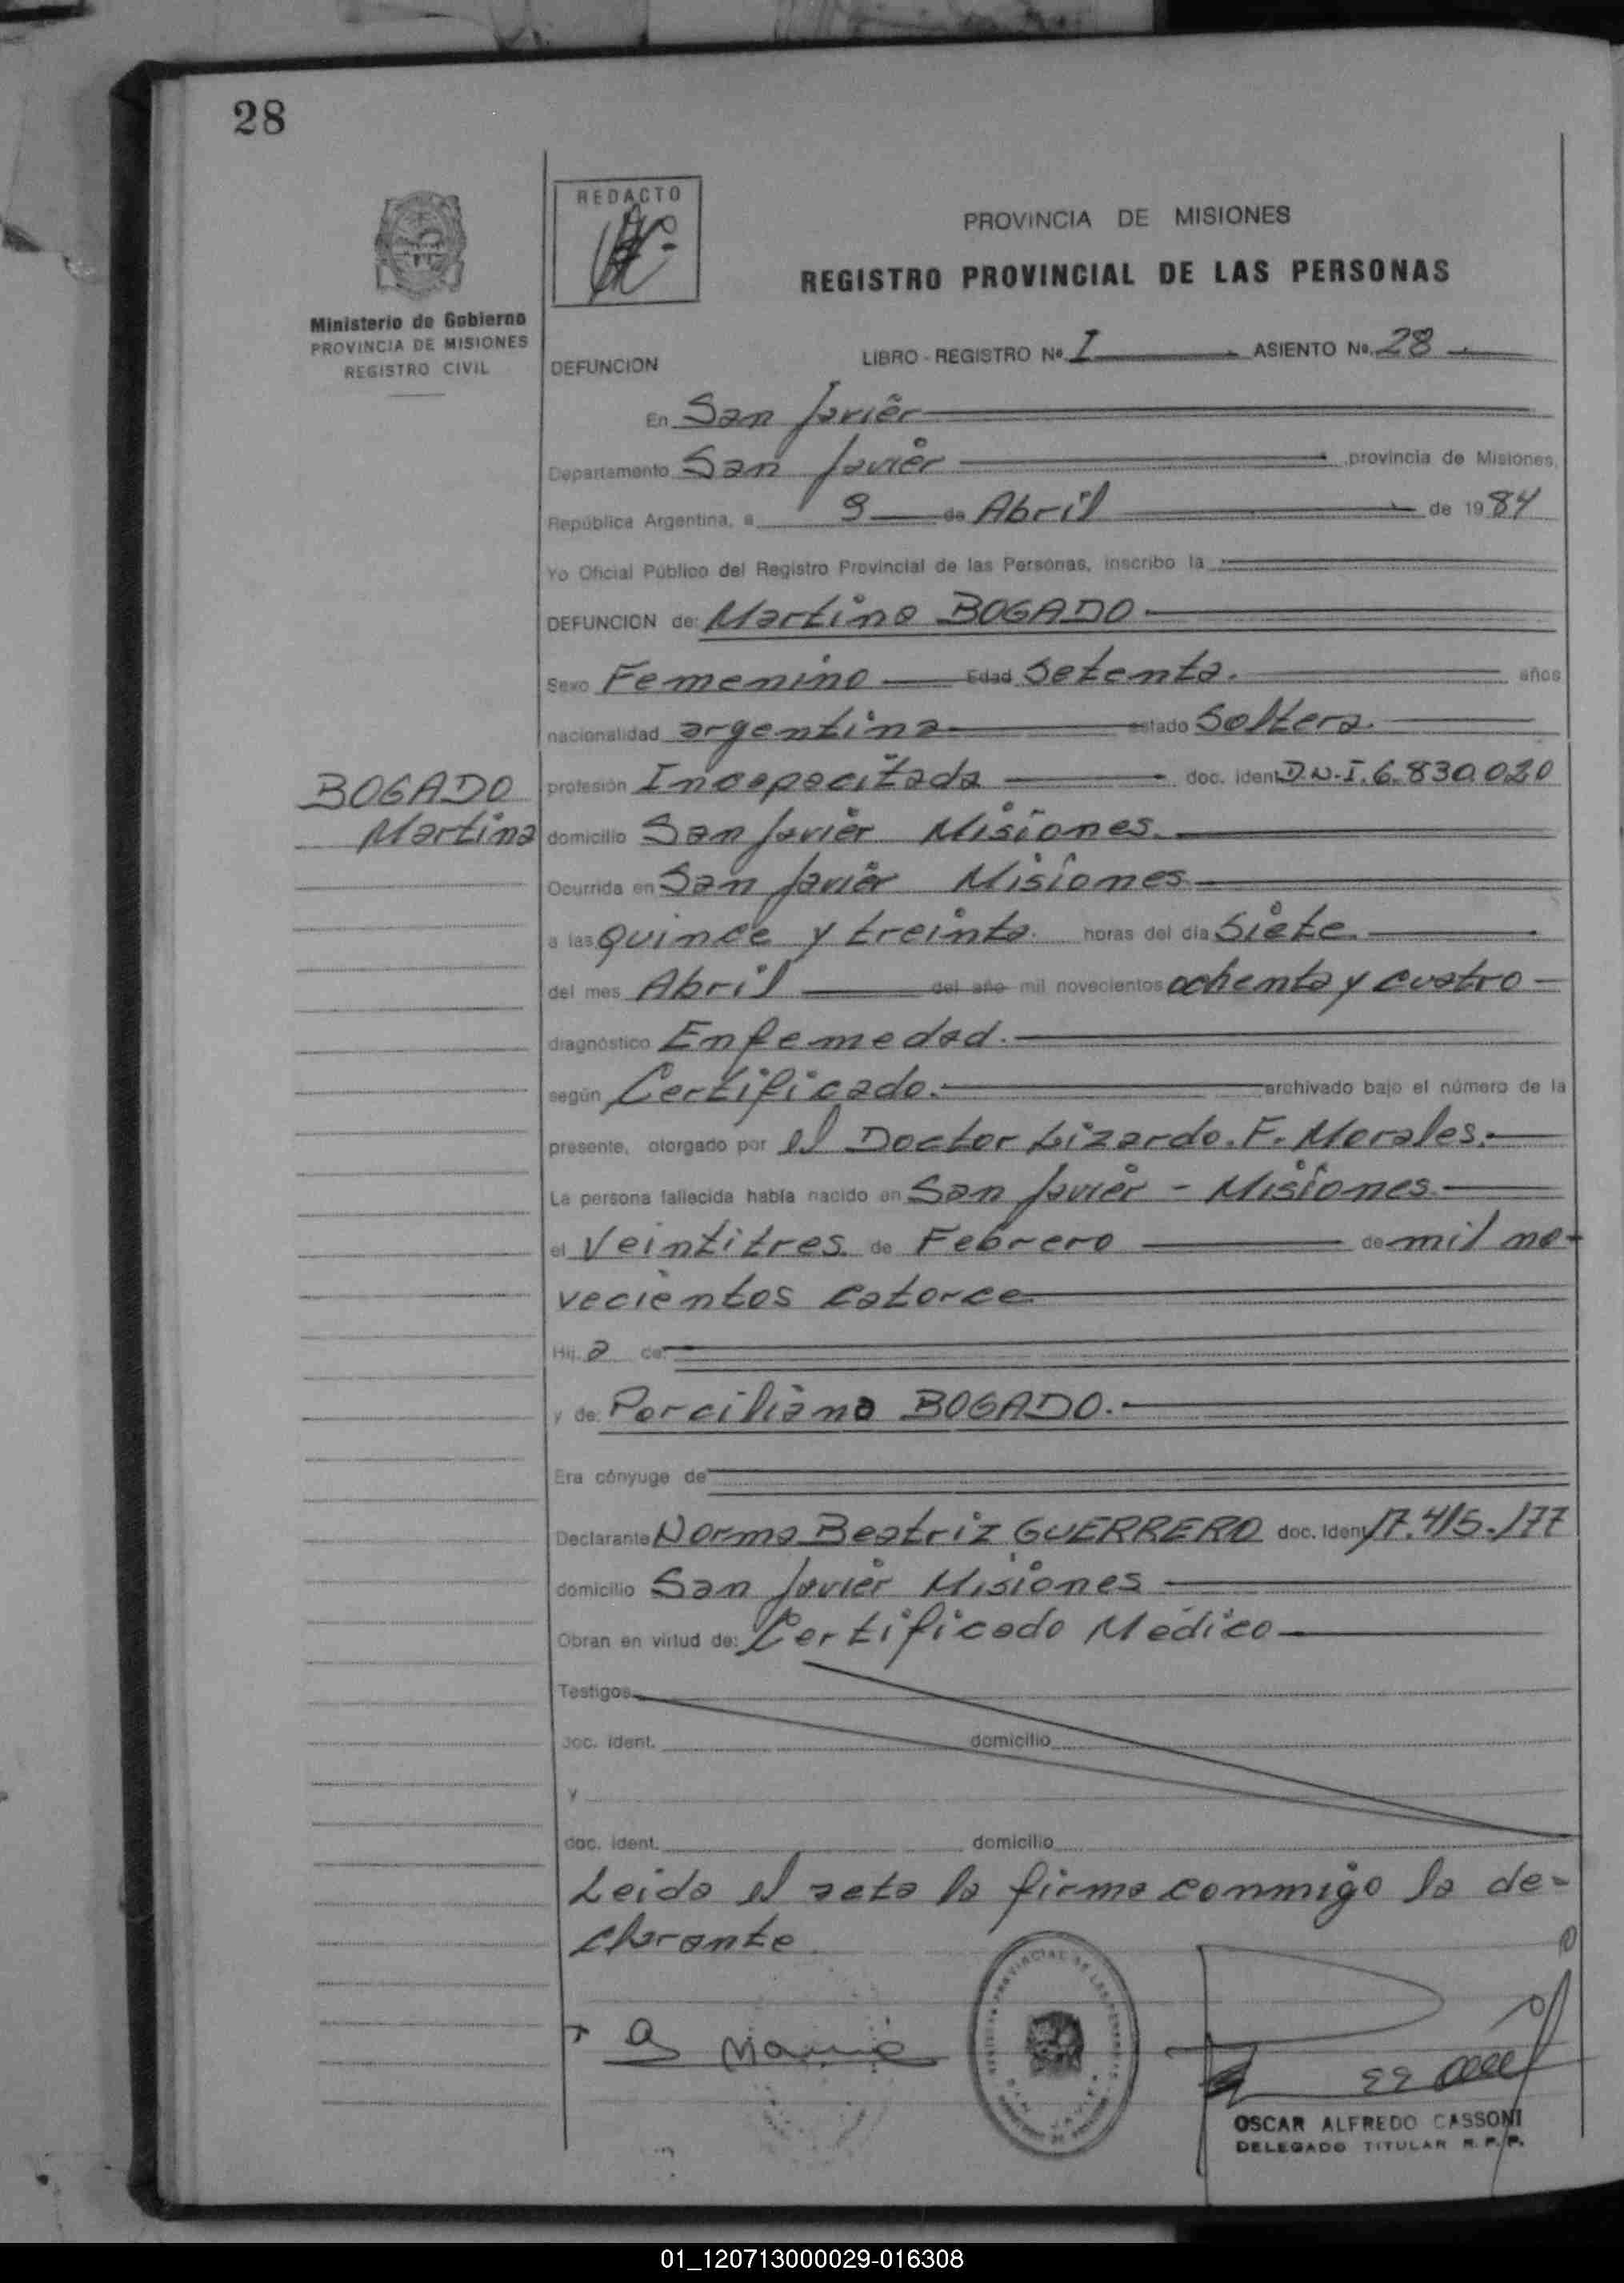 28
REDACTO
PROVINCIA DE MISIONES
REGISTRO PROVINCIAL DE LAS PERSONAS
Ministerio de Gobierno
PROVINCIA DE MISIONES
REGISTRO CIVIL
DEFUNCION LIBRO - REGISTRO Nº I ASIENTO Nº 28
En San Javier
Departamento San Javier provincia de Misiones,
República Argentina, a 9 de Abril de 1984
Yo Oficial Público del Registro Provincial de las Personas, inscribo la
DEFUNCION de: Martina BOGADO
Sexo Femenino Edad Setenta. años
nacionalidad argentina estado Soltera.
BOGADO
Martina
profesión Incapacitada doc. ident. D.N.I. 6.830.020
domicilio San Javier Misiones.
Ocurrida en San Javier Misiones
a las quince y treinta. horas del día Siete.
del mes Abril del año mil novecientos ochenta y cuatro
diagnóstico Enfemedad.
según Certificado. archivado bajo el número de la
presente, otorgado por el Doctor Lizardo. F. Morales.
La persona fallecida había nacido en San Javier - Misiones.
el Veintitres de Febrero de mil no-
vecientos catorce
Hij a de:
y de: Porciliana BOGADO.
Era cónyuge de
Declarante Norma Beatriz GUERRERO doc. Ident. 17.415.177
domicilio San Javier Misiones
Obran en virtud de: Certificado Médico
Testigos
doc. ident. domicilio
y
doc. ident. domicilio
Leida el acta la firma conmigo la de-
clarante
OSCAR ALFREDO CASSONI
DELEGADO TITULAR R.P.P.
01_120713000029-016308